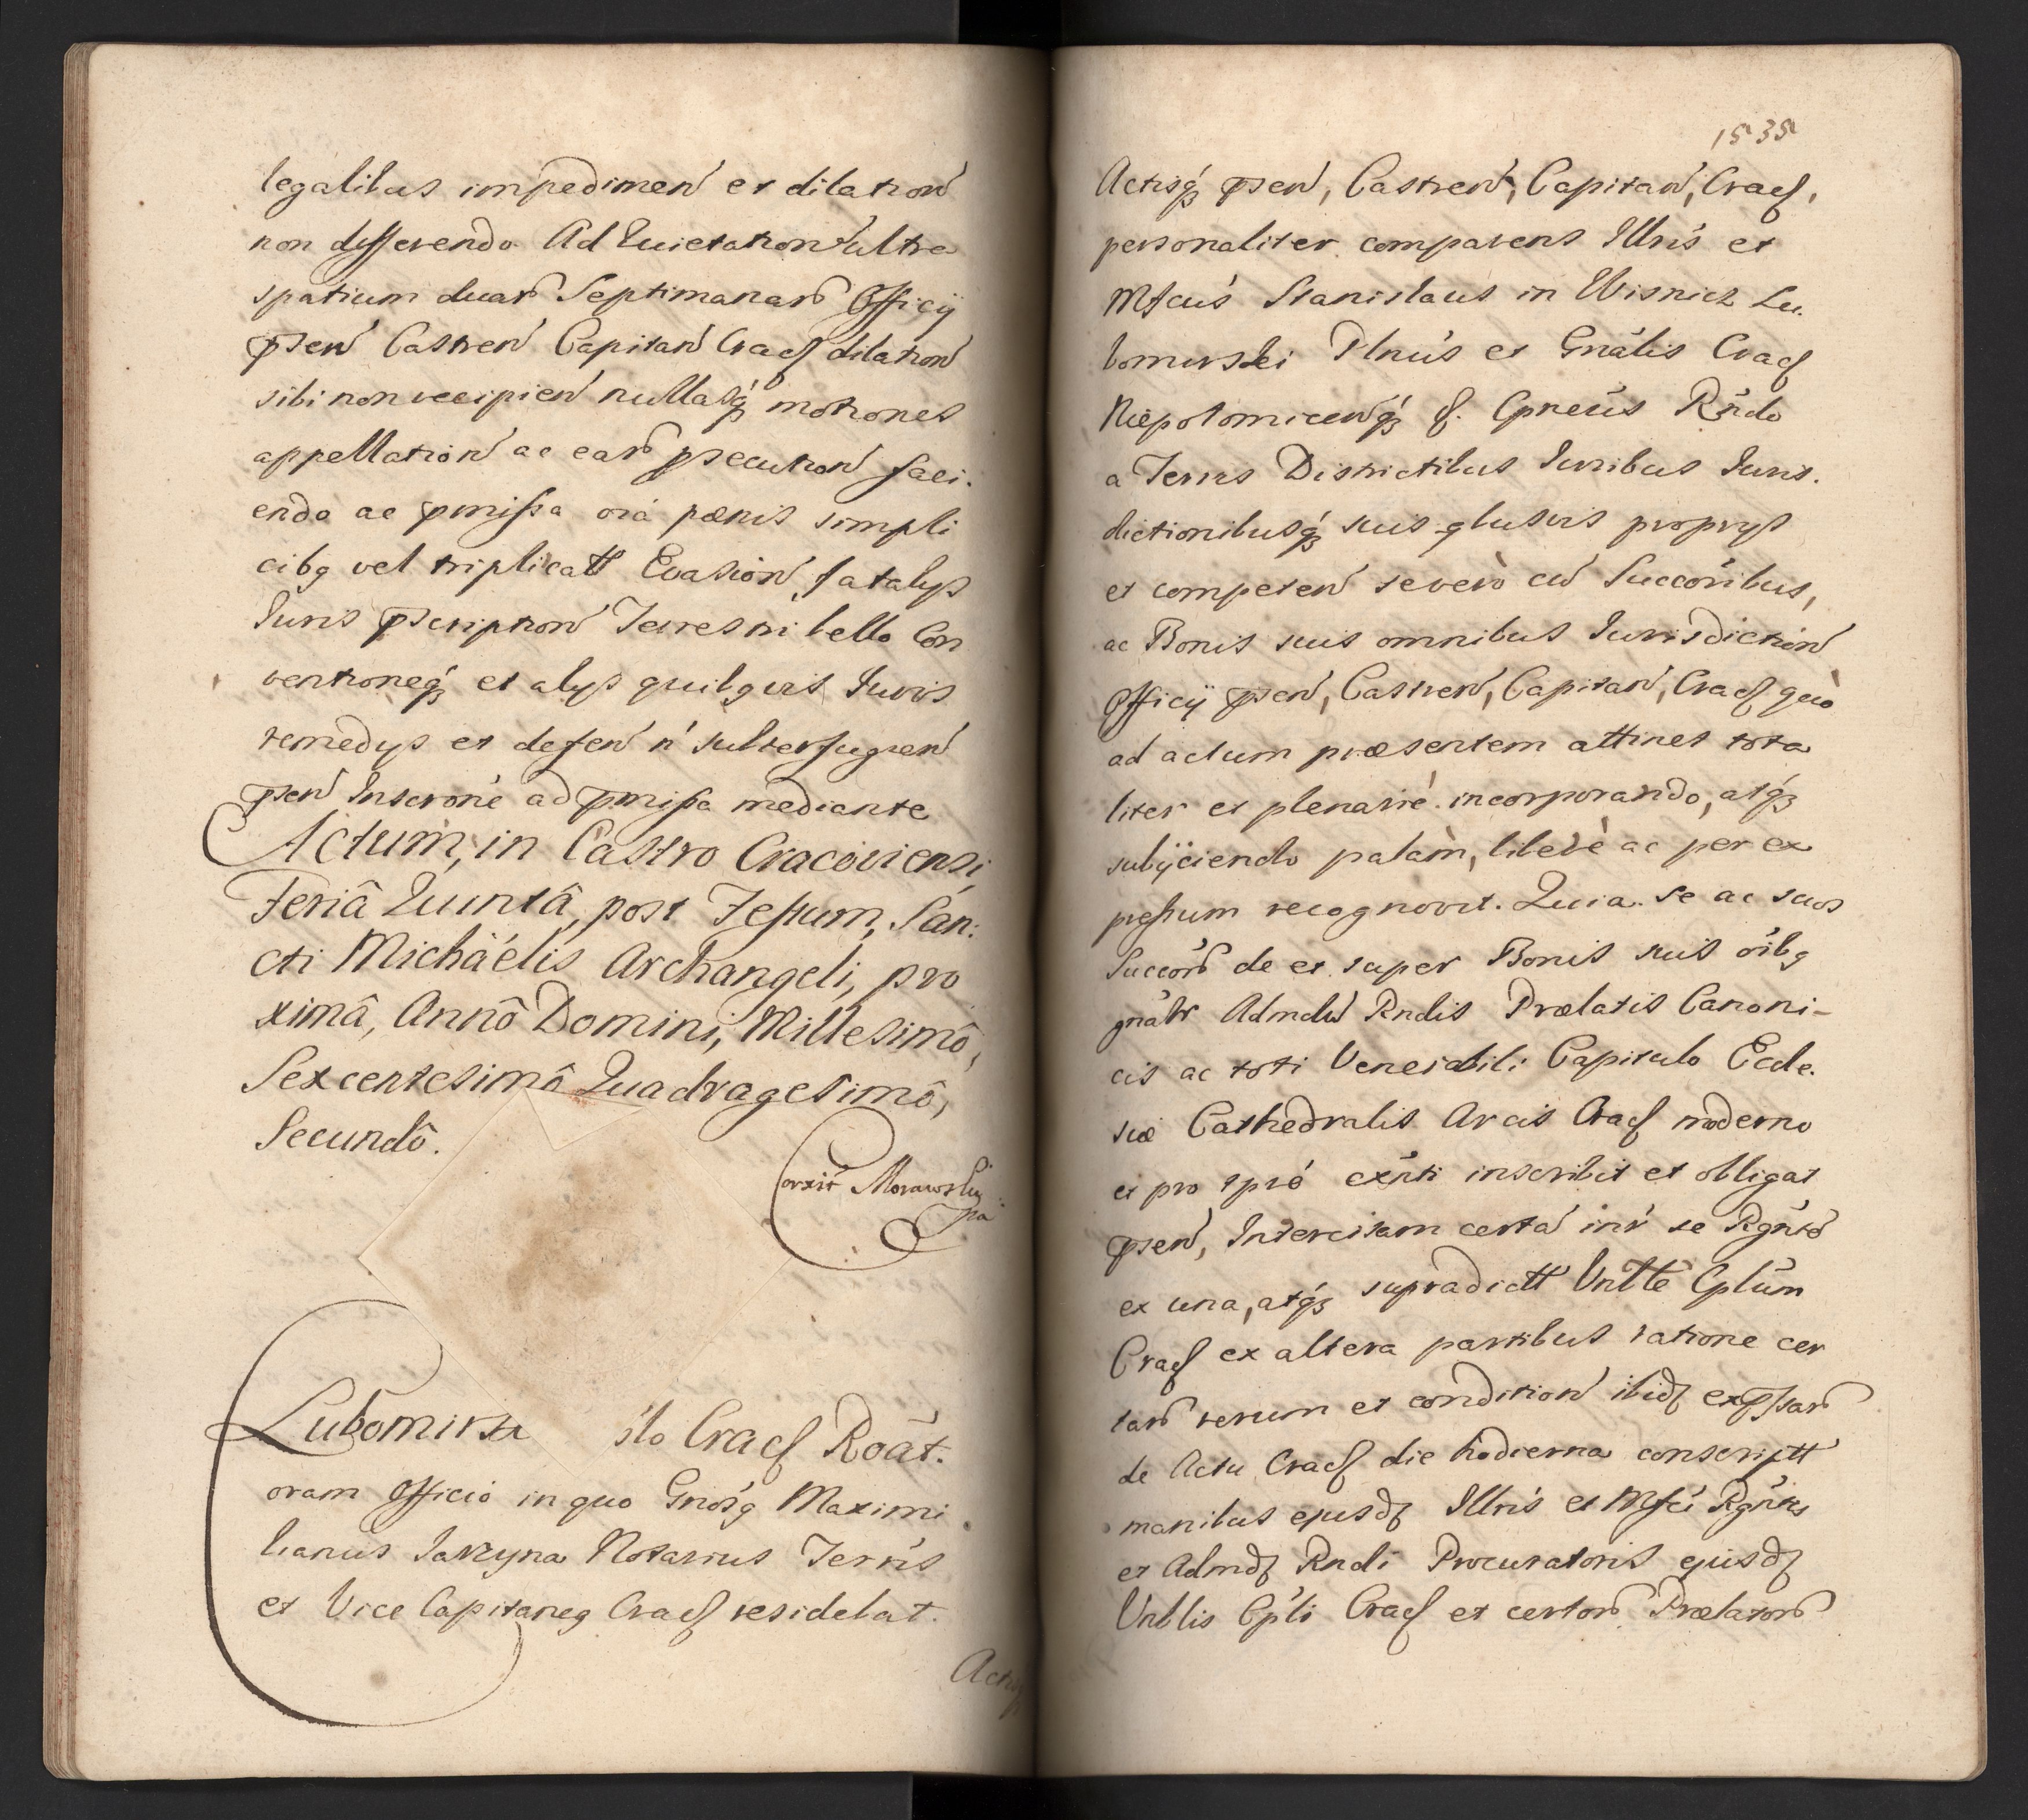 legalibus impedimen et dilation
non differendo Ad Quietation ultra
spatium duar Septimanar Officÿ
psen Castren Capitan Crac dilation
sibi non recipien nullasq motiones
appellation ac ear psecution faci.
endo ac pmissa oia pœnis simpli
cibq vel triplicatt Evasion fatalys
Juris pscription Terrestri bello Con
ventioneq et alys quibqvis Juris
remedys et defen n subterfugien
psen Inscrone ad pmissa mediante
Actum, in Castro Cracoviensi,
Feriâ Quintâ, post Festum, San:
cti Michäélis Archangeli, pro
ximâ, Annô Domini, Millesimô,
Sexcentesimô Quadragesimô,
Secundô.
Corxit Morawsky
Lubomirs slo Crac Roãt.
oram Officio in quo Gnosq Maximi
lianus Jarzyna Notarius Terris
et Vice Capitaneq Crac residebat.
Actisq
1535
Actisq psen, Castren, Capitan, Crac,
personaliter comparens Illris et
Mfcus Stanislaus in Wisnicz Lu.
bomirski Plnus et Gnalis Crac
Niepolomicenq Cpneus Rndo
a Terris Districtibus Juribus Juris.
dictionibusq suis qbusvis proprys
et competen severo cu Succoribus,
ac Bonis suis omnibus Jurisdiction
Officÿ psen, Castren, Capitan, Crac quo
ad actum præsentem attinet tota
liter et plenarie incorporando, atq
subÿciendo palàm, liberè ac per ex
pressum recognovit. Quia se ac suos
Succor de et super Bonis suis oibq
gnalr Admdu Rndis Prælatis Canoni-
cis ac toti Venerabili Capitulo Eccle.
siæ Cathedralis Arcis Crac moderno
et pro tpre exnti inscribit et obligat
psen, Intercisam certa intr se Rgntr
ex una, atq supradictt Vnble Cplum
Crac ex altera partibus ratione cer
tar rerum et condition ibid expssar
de Actu Crac die hodierna conscriptt
manibus ejusd Illris et Mfci Rgntis
et Admd Rndi Procuratoris ejusd
Vnblis Cpli Crac et certor Prælator